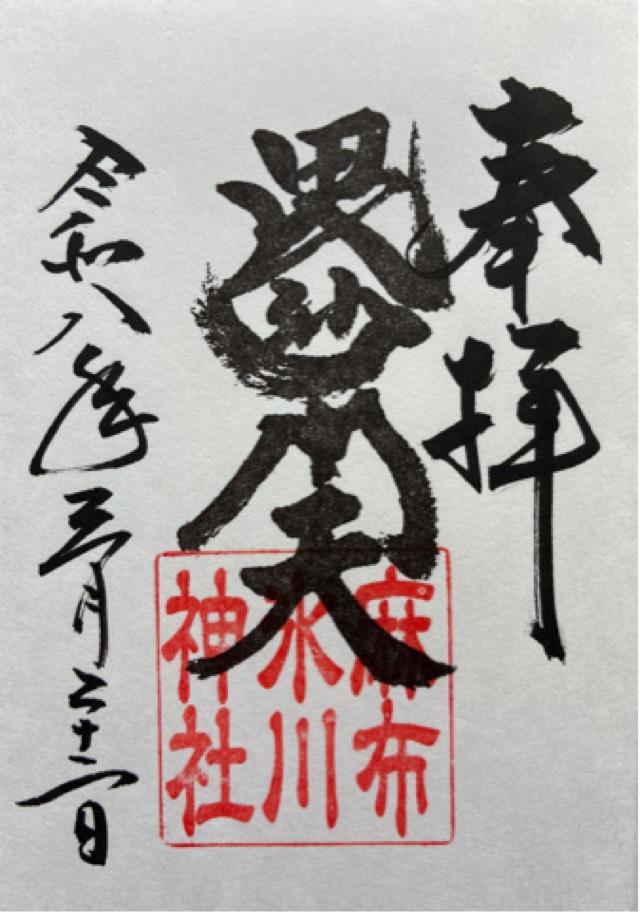 奉拝
毘沙門天
麻布
氷川
神社
令和八年三月二十一日